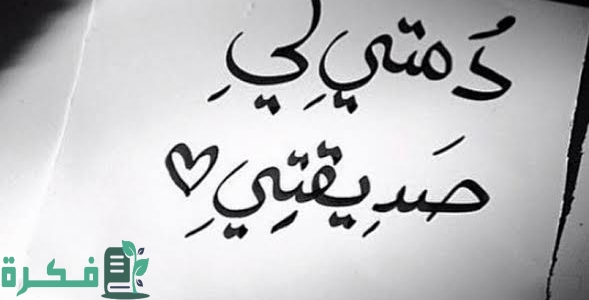 دُمتي لِي
صَدِيقتِي ♡
فكرة